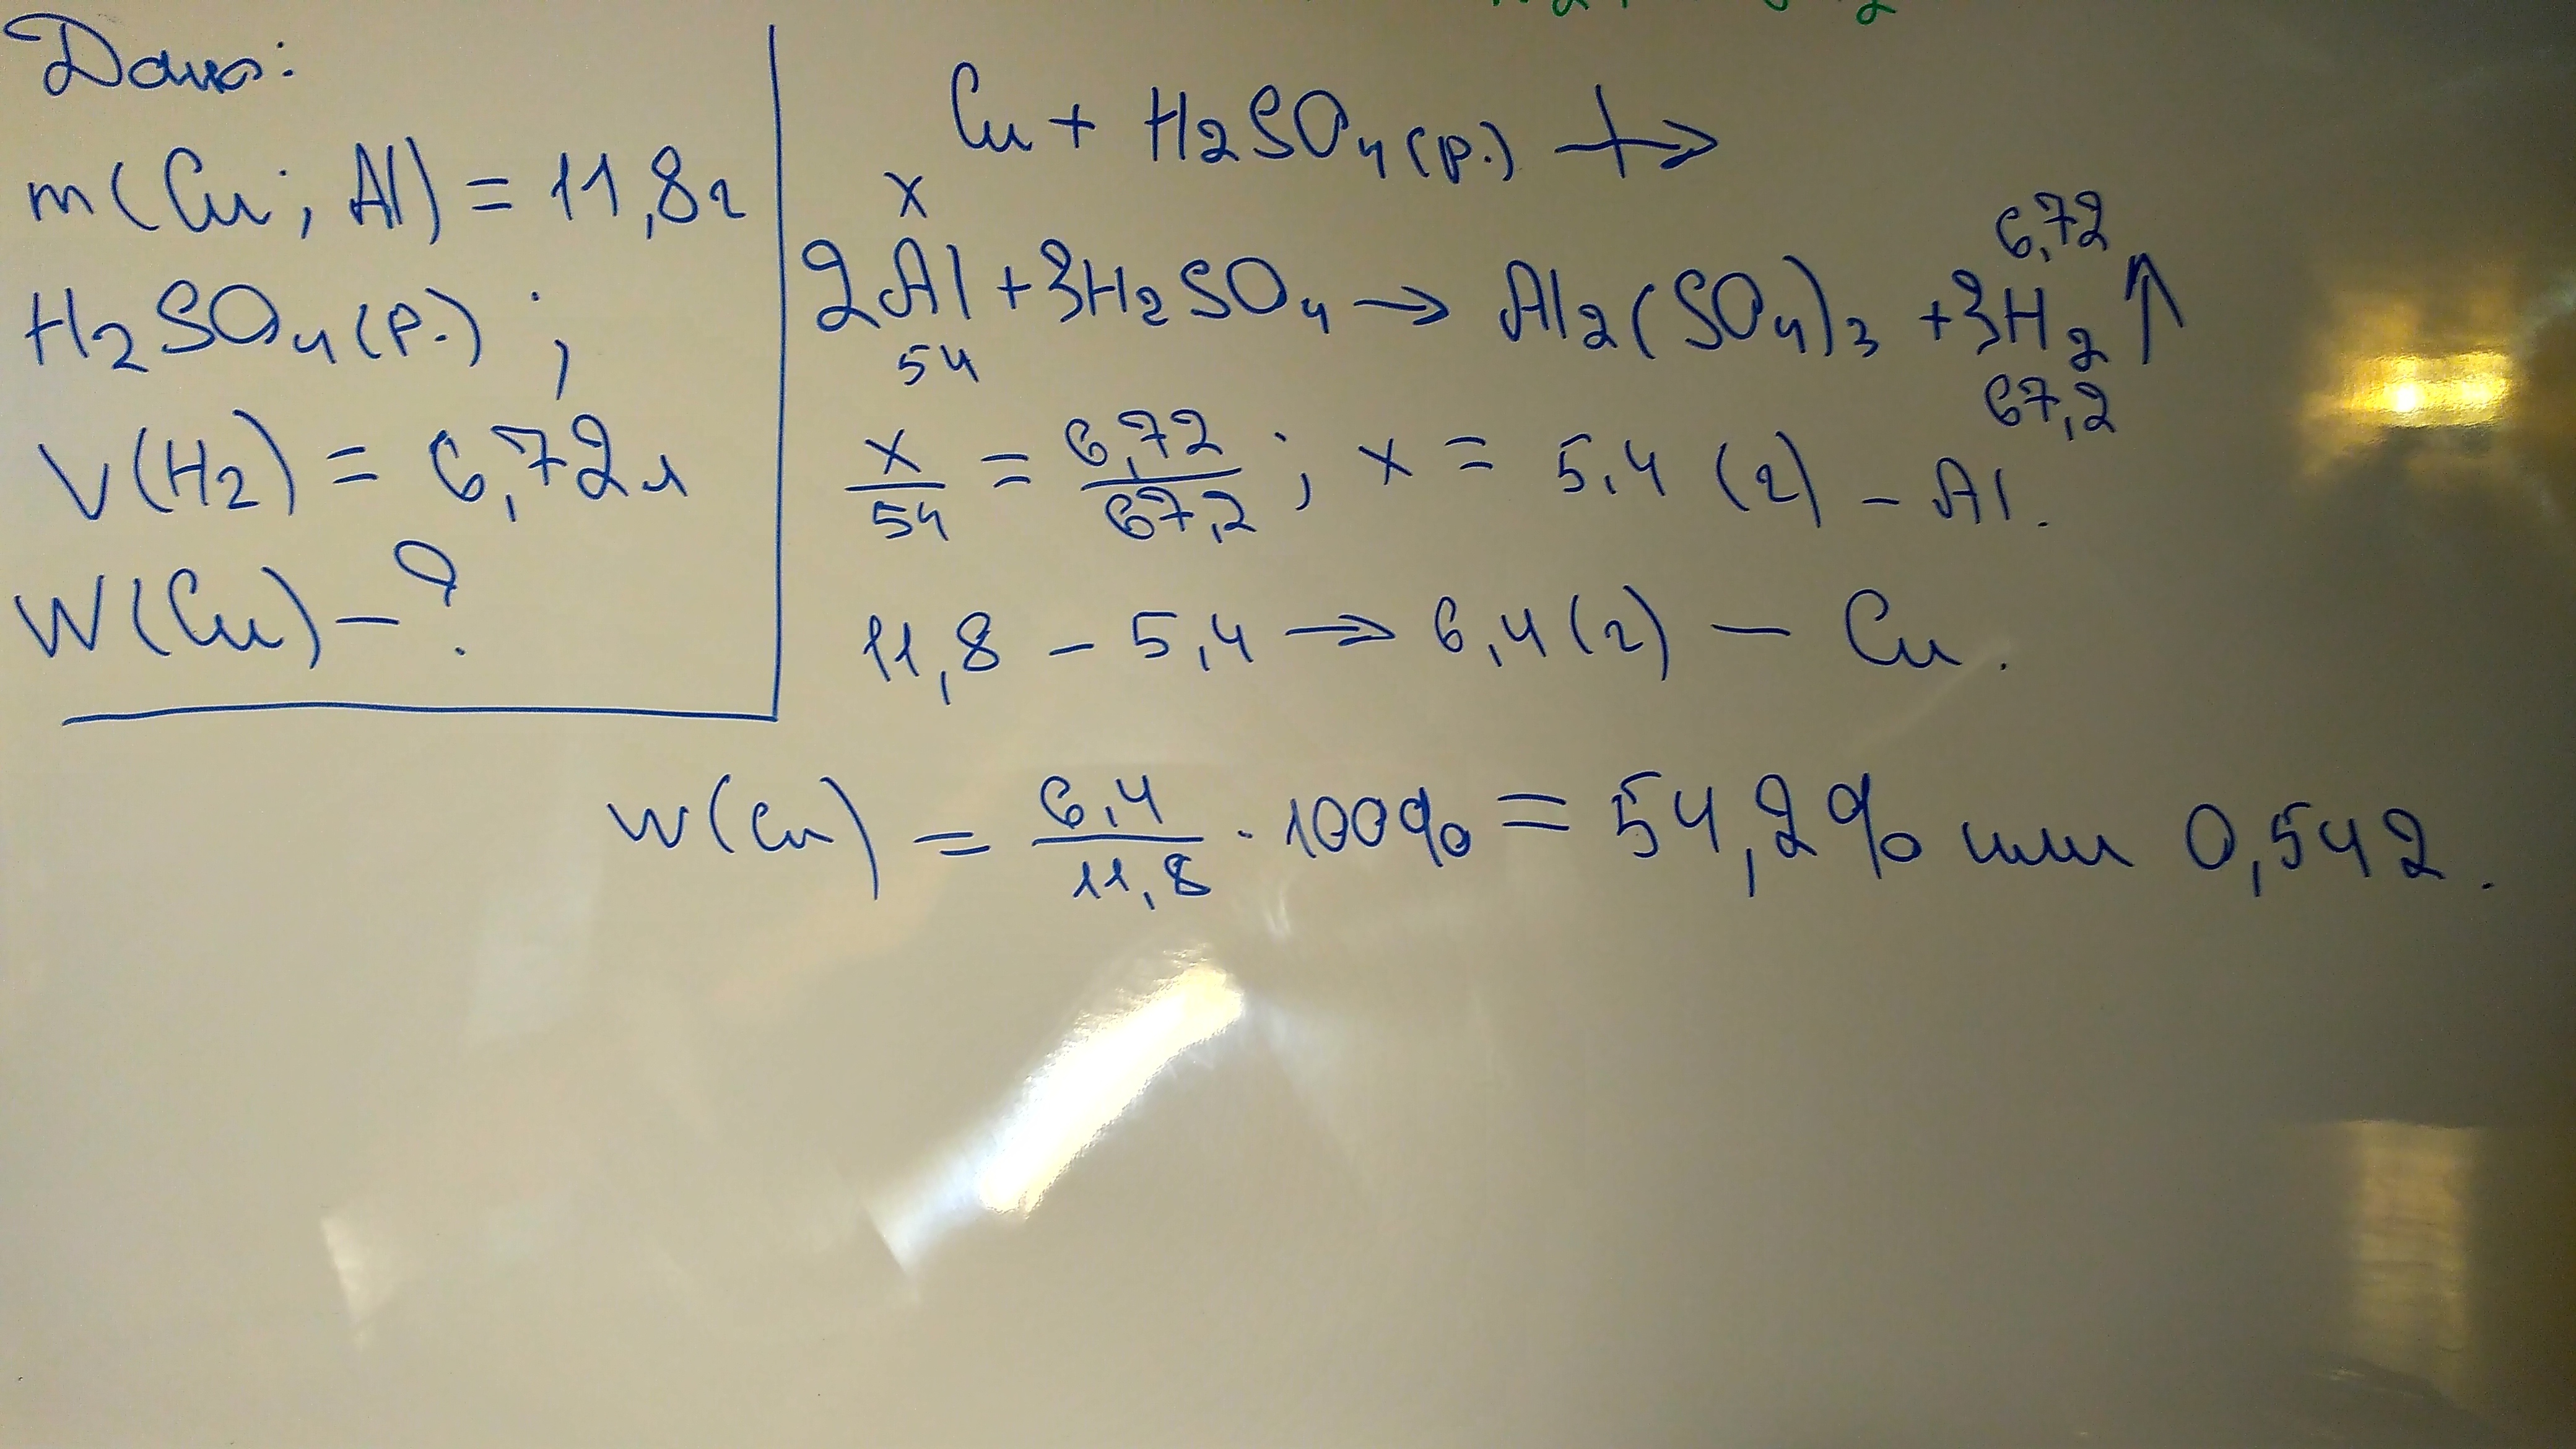 Дано:
m(Cu; Al) = 11,8г
H2SO4(р.);
V(H2) = 6,72л
W(Cu) - ?
Cu + H2SO4(р.) ⇸
x 6,72
2Al + 3H2SO4 → Al2(SO4)3 + 3H2↑
54 67,2
x/54 = 6,72/67,2; x = 5,4 (г) - Al.
11,8 - 5,4 → 6,4(г) - Cu.
w(Cu) = 6,4/11,8 · 100% = 54,2% или 0,542.